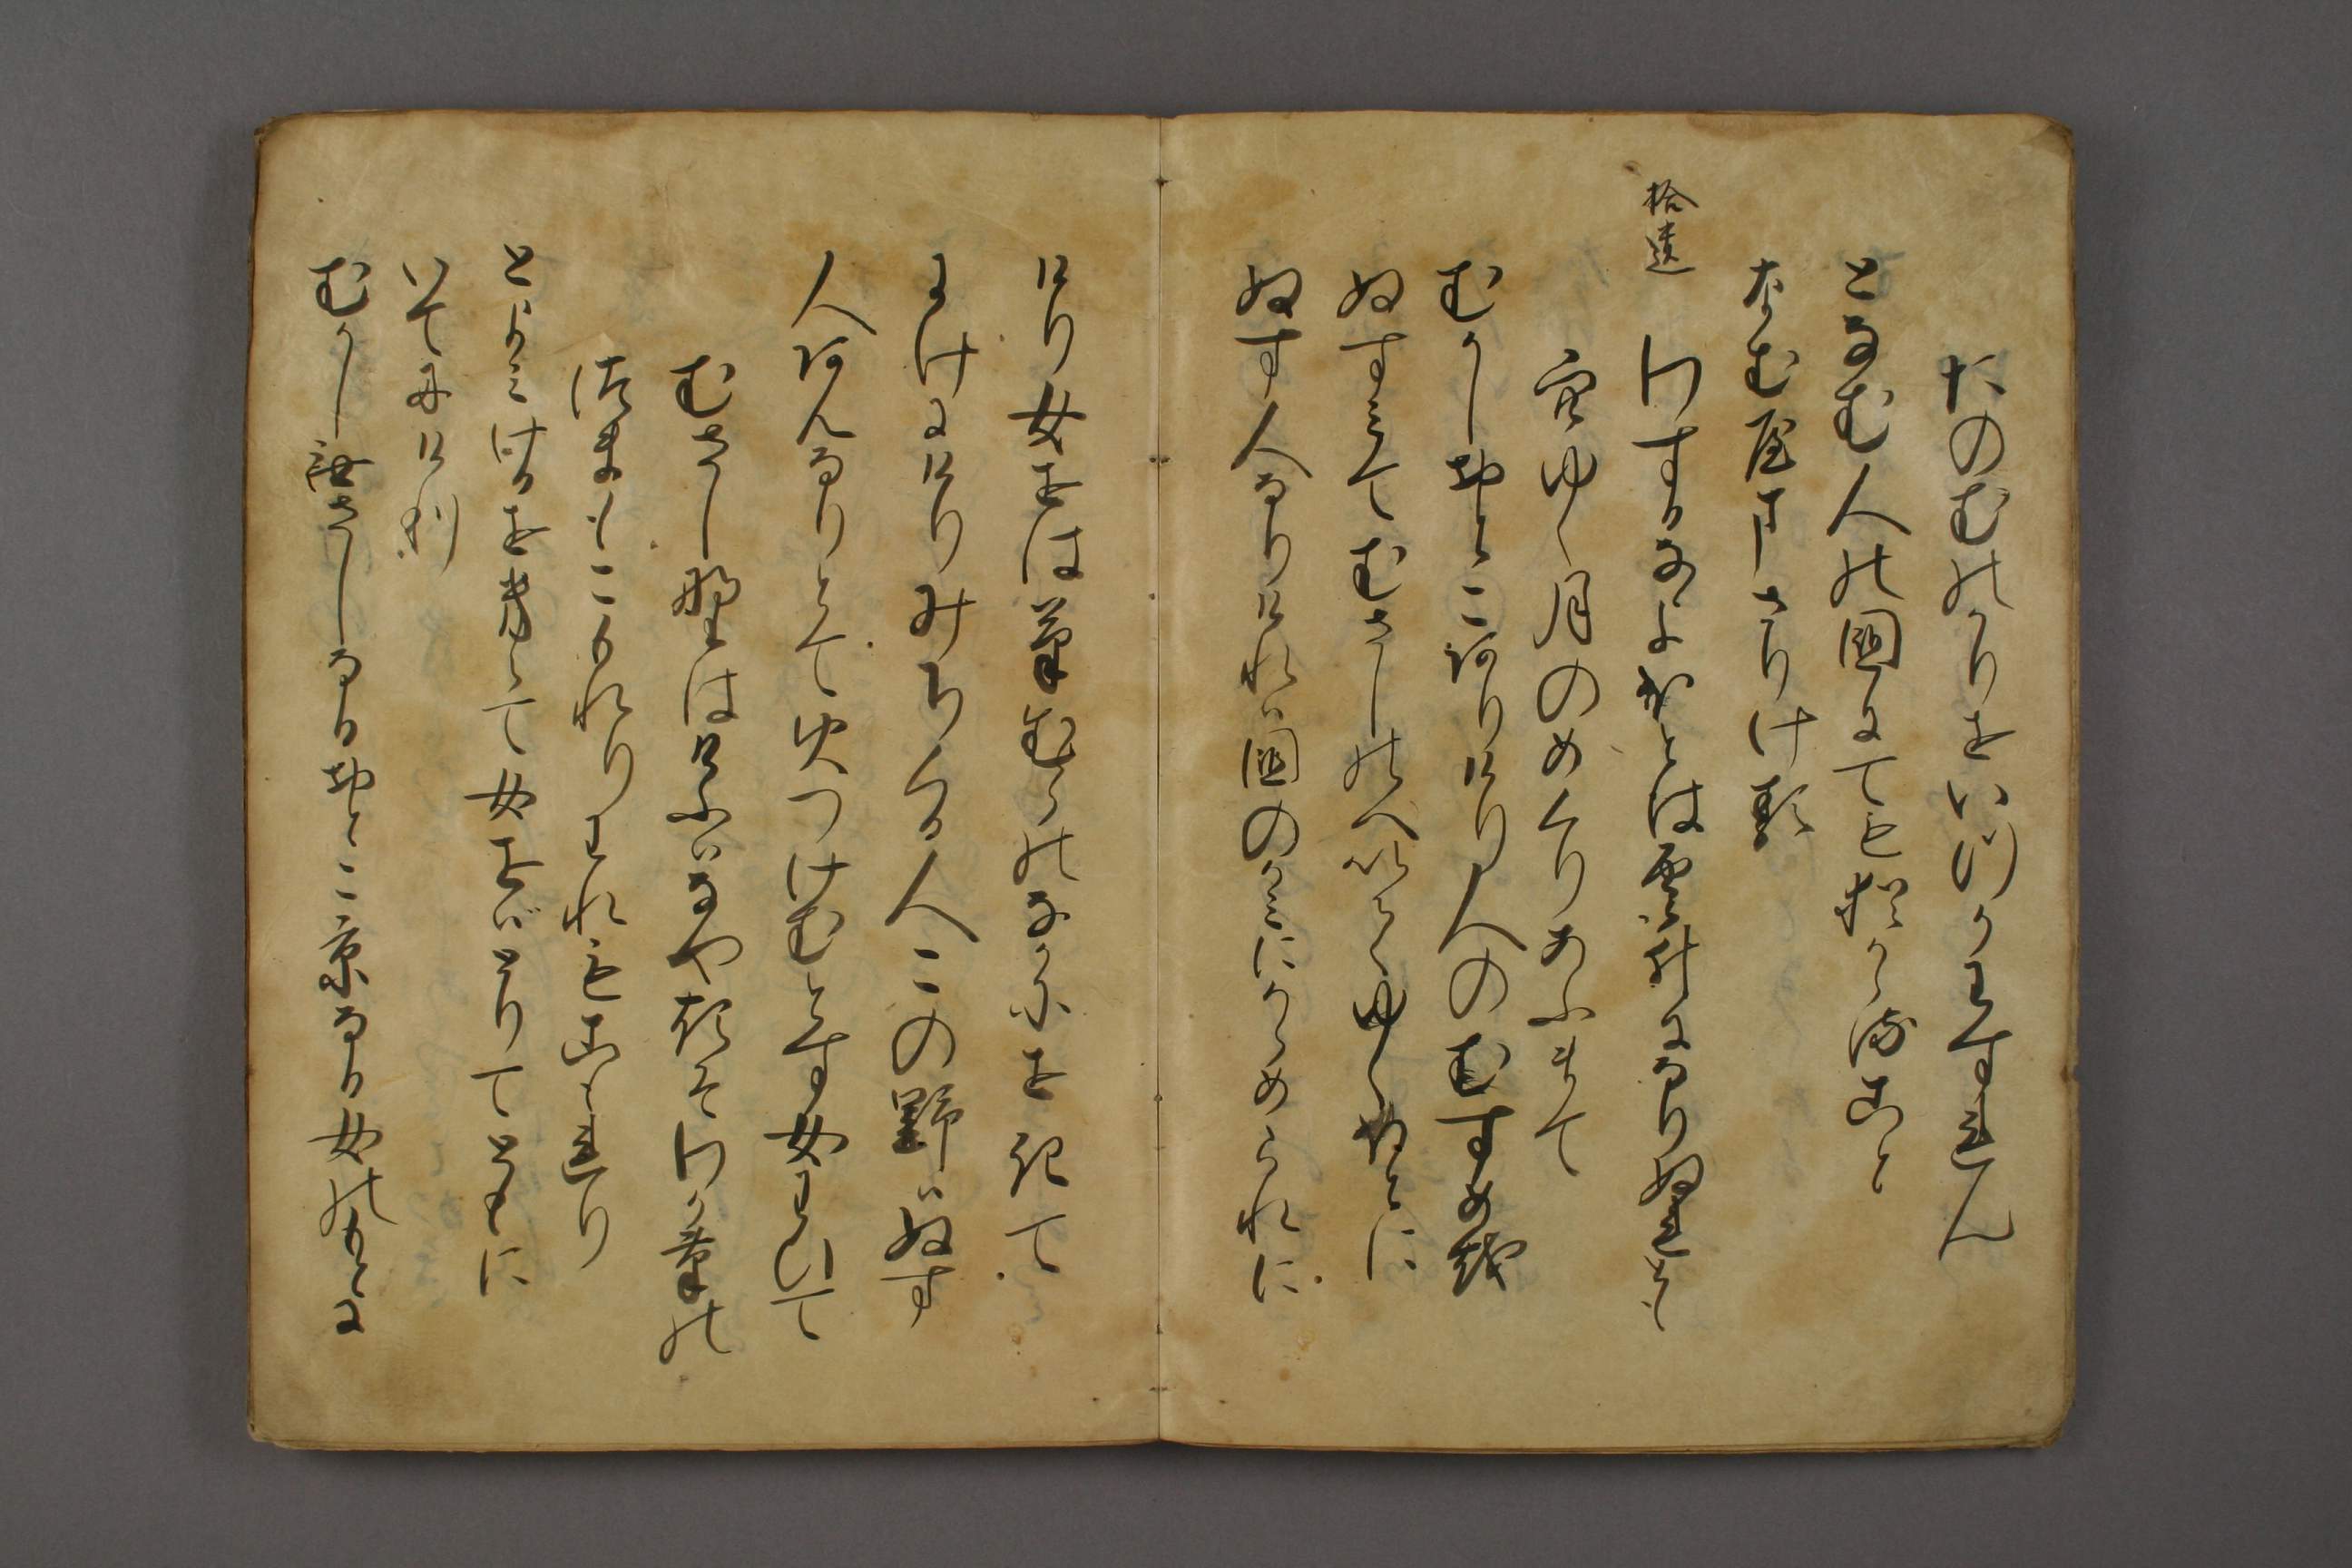 たのむのかりをいつかわすれん
となむ人の国にても猶かゝる事と
なむやまさりける
拾遺
わするなよほとは雲井になりぬとも
空ゆく月のめくりあふまて
むかしおとこありけり人のむすめを
ぬすみてむさしのへいてゆくほとに
ぬす人なりけれは国のかみにからめられに
けり女をは草むらのなかにをきて
にけにけりみちくる人この野はぬす
人あんなりとて火つけむとす女わひて
むさし野はけふはなやきそわか草の
つまもこもれりわれもこもれり
とよみけるをきゝて女をはとりてともに
いてにけり
むかし武さしなるおとこ京なる女のもとに